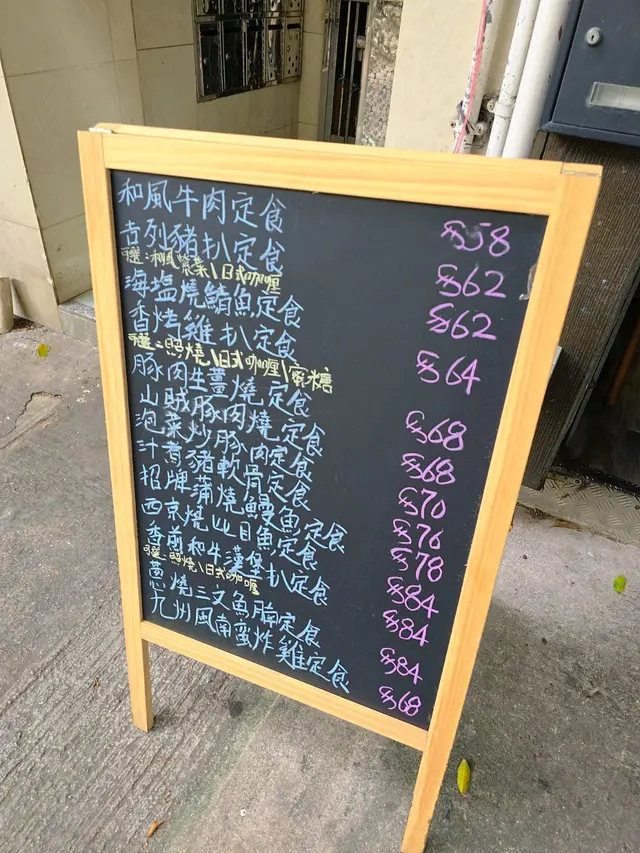 和風牛肉定食 $58
吉列豬扒定食 $62
可選：和風紫菜\日式咖喱
海塩燒鯖魚定食 $62
香烤雞扒定食 $64
可選：照燒\日式咖喱\蜜糖
豚肉生薑燒定食 $68
山賊豚肉燒定食 $68
泡菜炒豚肉定食 $70
汁煮豬軟骨定食 $76
招牌蒲燒鰻魚定食 $78
西京燒比目魚定食 $84
香煎和牛漢堡扒定食 $84
可選：照燒\日式咖喱
燒三文魚腩定食 $84
九州風南蛮炸雞定食 $68